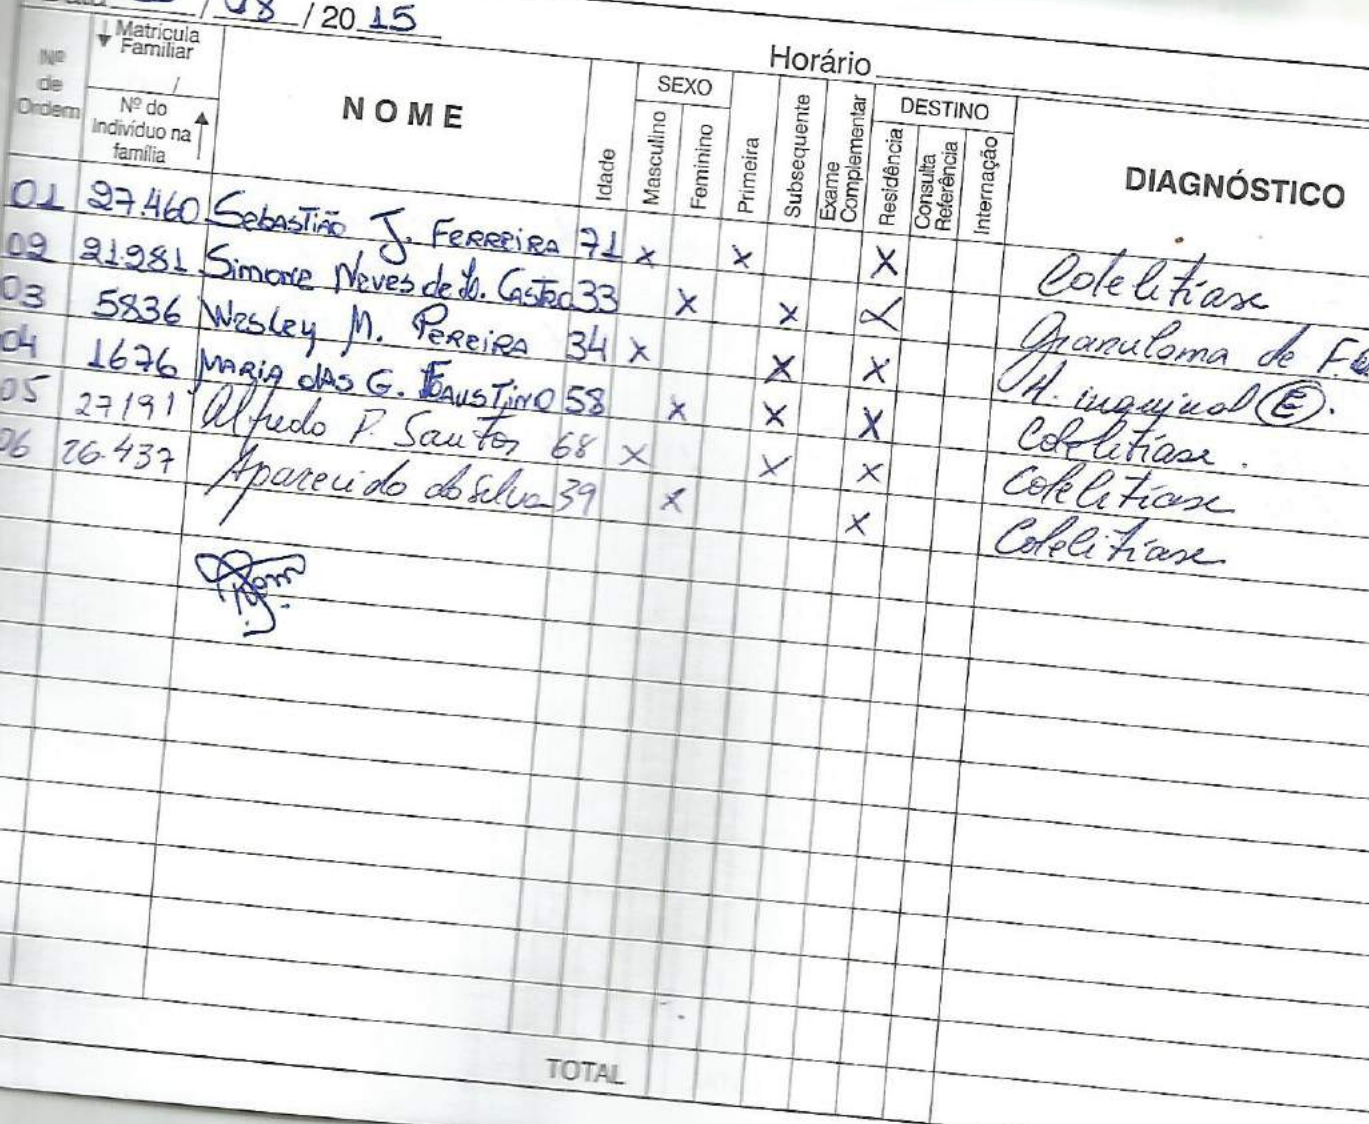 / 08 / 20 15
Horário
Nº de Ordem
Matrícula Familiar
/
Nº do Indivíduo na família
NOME
Idade
SEXO
Masculino
Feminino
Primeira
Subsequente
Exame Complementar
DESTINO
Residência
Consulta Referência
Internação
DIAGNÓSTICO
01 27.460 Sebastião J. Ferreira 71 x x x Colelitíase
02 21.281 Simone Neves de Castro 33 x x x Granuloma de
03 5836 Wesley M. Pereira 34 x x x H. inguinal (E).
04 1676 Maria das G. Faustino 58 x x x Colelitíase.
05 27191 Alfredo P. Santos 68 x x x Colelitíase
06 26.437 Aparecido da Silva 39 x x Colelitíase
TOTAL